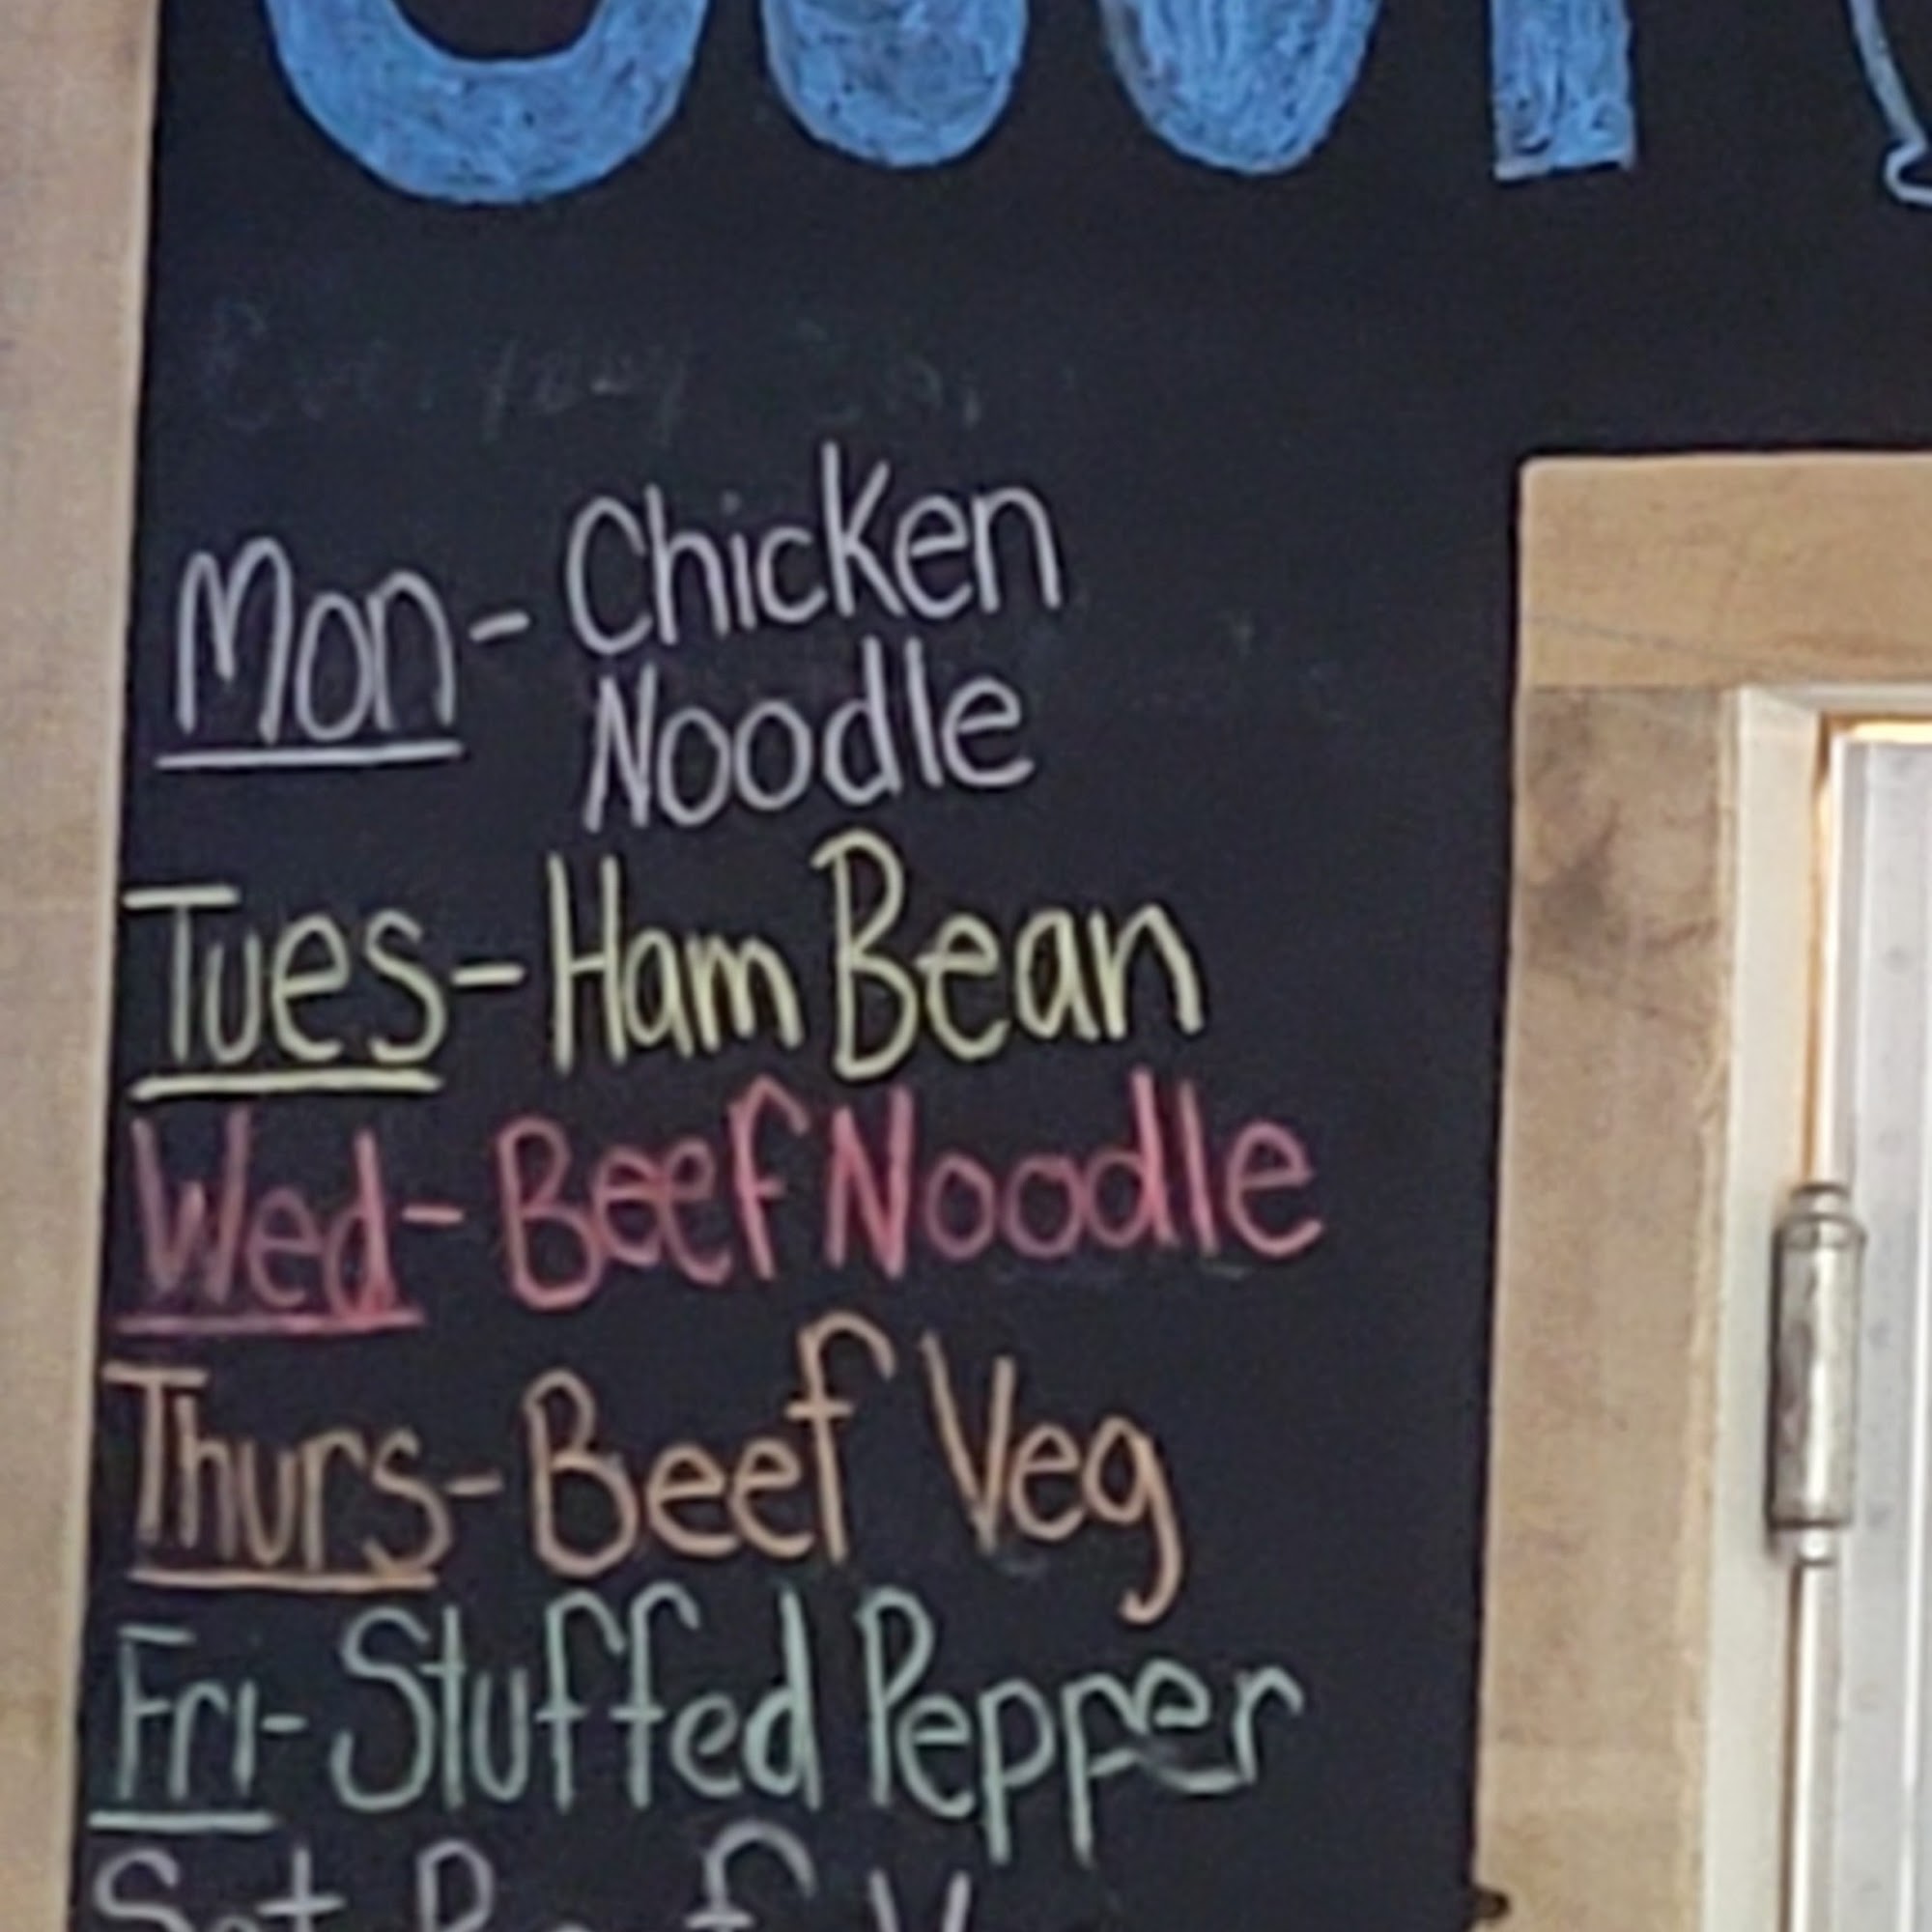 Mon - Chicken
Noodle
Tues - Ham Bean
Wed - Beef Noodle
Thurs - Beef Veg
Fri - Stuffed Pepper
Sat Beef